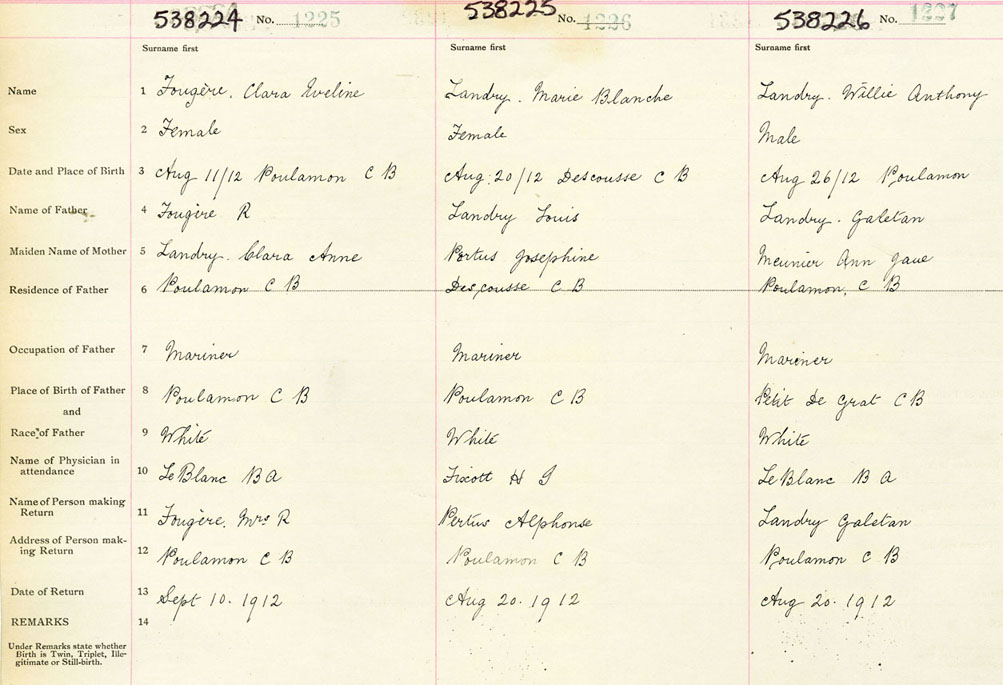 538224 No. 1225 538225 No. 1226 538226 No. 1227
Surname first Surname first Surname first
Name 1 Fougère. Clara Eveline Landry. Marie Blanche Landry. Willie Anthony
Sex 2 Female Female Male
Date and Place of Birth 3 Aug 11/12 Poulamon C B Aug. 20/12 Descousse C B Aug 26/12 Poulamon
Name of Father 4 Fougère R Landry Louis Landry. Galetan
Maiden Name of Mother 5 Landry. Clara Anne Portus Josephine Meunier Ann Jane
Residence of Father 6 Poulamon C B Descousse C B Poulamon, C B
Occupation of Father 7 Mariner Mariner Mariner
Place of Birth of Father 8 Poulamon C B Poulamon C B Petit De Grat C B
and
Race of Father 9 White White White
Name of Physician in
attendance 10 LeBlanc B A Fixott H J LeBlanc B A
Name of Person making
Return 11 Fougère, Mrs R Pertus Alphonse Landry Galetan
Address of Person mak-
ing Return 12 Poulamon C B Poulamon C B Poulamon C B
Date of Return 13 Sept 10. 1912 Aug 20. 1912 Aug 20. 1912
REMARKS 14
Under Remarks state whether
Birth is Twin, Triplet, Ille-
gitimate or Still-birth.